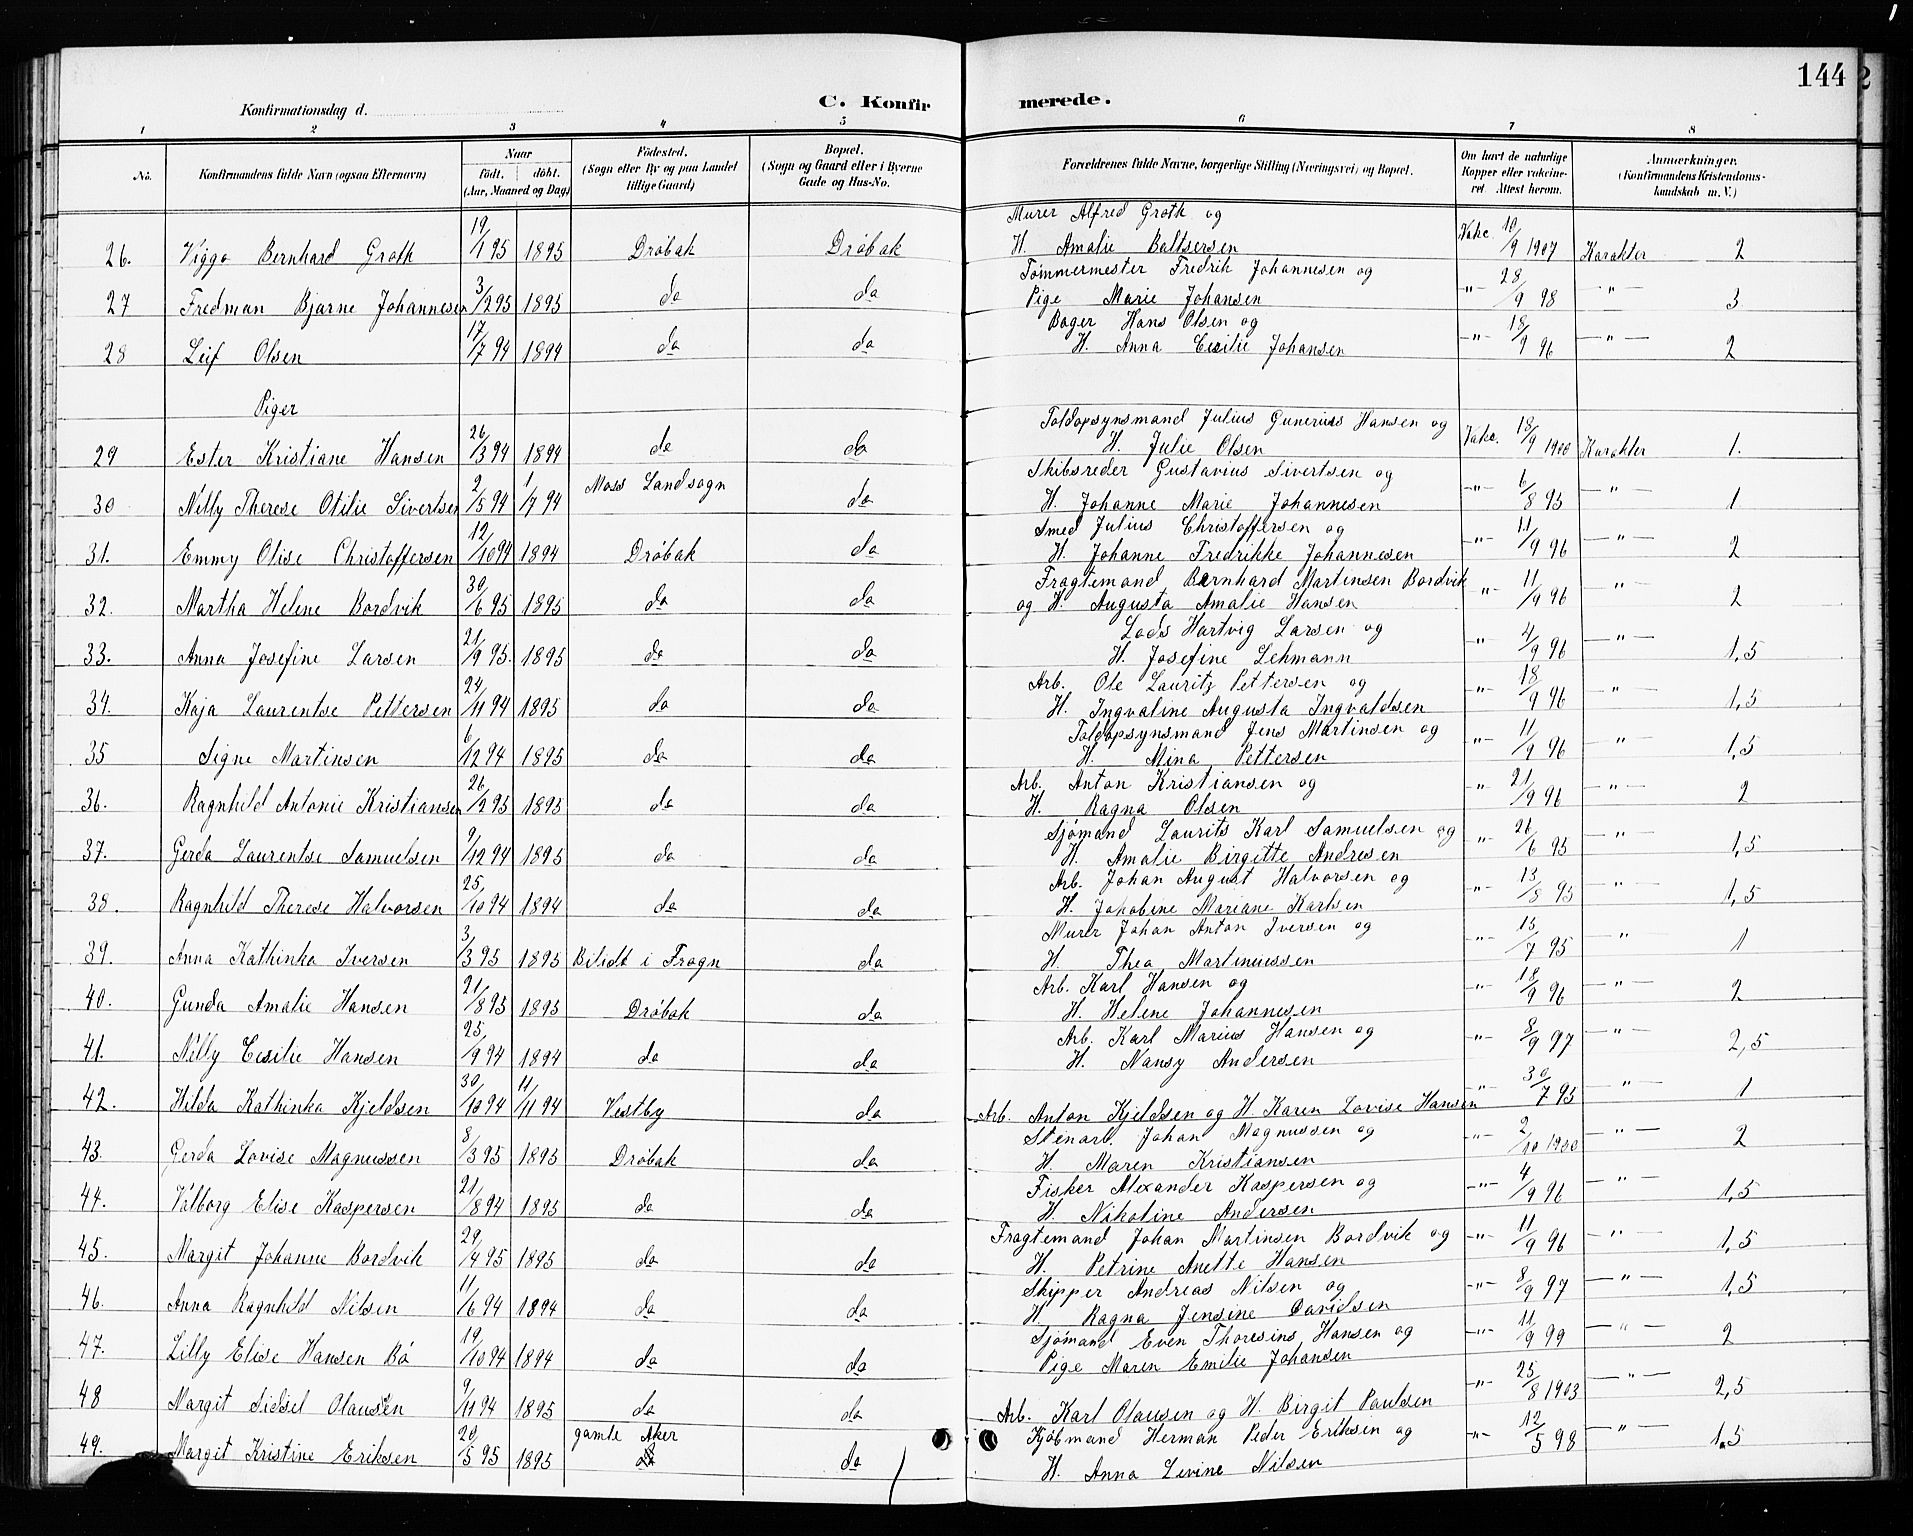 144
Konfirmationsdag d.
C. Konfirmerede.
1 2 3 4 5 6 7 8
No. Konfirmandens fulde Navn (ogsaa Efternavn) Naar født. døbt. (Aar, Maaned og Dag) Fødested. (Sogn eller By og paa Landet tillige Gaard) Bopæl. (Sogn og Gaard eller i Byerne Gade og Hus-No. Forældrenes fulde Navne, borgerlige Stilling (Næringsvei) og Bopæl. Om havt de naturlige Kopper eller vakcineret. Attest herom. Anmerkninger. (Konfirmandens Kristendomskundskab m. V.)
Murer Alfred Groth og
26. Viggo Bernhard Groth 19/1 95 1895 Drøbak Drøbak H. Amalie Baltsersen Vakc. 10/9 1907 Karakter 2
Tømmermester Fredrik Johannesen og
27 Fredman Bjarne Johannesen 3/2 95 1895 do do Pige Marie Johansen -"- 28/9 98 -"- 3
Bager Hans Olsen og
28 Leif Olsen 17/7 94 1894 do do H. Anna Cecilie Johansen -"- 18/9 96 -"- 2
Piger
Toldopsynsmand Julius Gunerius Hansen og
29 Ester Kristiane Hansen 26/3 94 1894 do do H. Julie Olsen Vakc. 18/9 1900 Karakter 1.
Skibsreder Gustavius Sivertsen og
30 Nilly Therese Otilie Sivertsen 2/5 94 1/7 94 Moss Landsogn do H. Johanne Marie Johannesen -"- 6/8 95 -"- 1
Smed Julius Christoffersen og
31. Emmy Olise Christoffersen 12/10 94 1894 Drøbak do H. Johanne Fredrikke Johannesen -"- 11/9 96 -"- 2
Fragtemand Bernhard Martinsen Bordvik
32. Martha Helene Bordvik 30/6 95 1895 do do og H. Augusta Amalie Hansen -"- 11/9 96 " 2
Lods Hartvig Larsen og
33. Anna Josefine Larsen 21/9 95. 1895 do do H. Josefine Lehmann -"- 4/9 96 -"- 1,5
Arb. Ole Lauritz Pettersen og
34. Kaja Laurentse Pettersen 24/11 94 1895 do do H. Ingvaline Augusta Ingvaldsen -"- 18/9 96 -"- 1,5
Toldopsynsmand Jens Martinsen og
35 Signe Martinsen 6/12 94 1895 do do H. Mina Pettersen -"- 11/9 96 -"- 1,5
Arb. Anton Kristiansen og
36. Ragnhild Antonie Kristiansen 26/2 95 1895 do do H. Ragna Olsen -"- 21/9 96 -"- 2
Sjømand Laurits Karl Samuelsen og
37. Gerda Laurentse Samuelsen 9/12 94 1895 do do H. Amalie Birgitte Andresen -"- 26/6 95 -"- 1,5
Arb. Johan August Halvorsen og
38. Ragnhild Therese Halvorsen 25/10 94 1894 do do H. Jakobine Mariane Karlsen -"- 13/8 95 -"- 1,5
Murer Johan Anton Iversen og
39. Anna Kathinka Iversen 3/3 95 1895 Bilidt i Frogn do H. Thea Martinussen -"- 15/7 95 -"- 1
Arb. Karl Hansen og
40. Gunda Amalie Hansen 21/8 95 1895 Drøbak do H. Helene Johannesen -"- 18/9 96 -"- 2
Arb. Karl Marius Hansen og
41. Nelly Cesilie Hansen 25/9 94 1894 do do H. Nansy Andersen -"- 8/9 97 -"- 2,5
42. Hilda Kathinka Kjeldsen 30/10 94 11/11 94 Vestby do Arb. Anton Kjeldsen og H. Karen Lovise Hansen -"- 30/7 95 -"- 1
Stenarb. Johan Magnussen og
43. Gerda Lovise Magnussen 8/3 95 1895 Drøbak do H. Maren Kristiansen -"- 2/10 1900 -"- 2
Fisker Alexander Kaspersen og
44. Valborg Elise Kaspersen 21/8 94 1895 do do H. Nikoline Andersen -"- 4/9 96 -"- 1,5
Fragtemand Johan Martinsen Bordvik og
45. Margit Johanne Bordvik 29/4 95 1895 do do H. Petrine Anette Hansen -"- 11/9 96 -"- 1,5
Skipper Andreas Nilsen og
46. Anna Ragnhild Nilsen 11/6 94 1894 do do H. Ragna Jensine Davidsen -"- 8/9 97 -"- 1,5
Sjømand Even Thoresius Hansen og
47. Lilly Elise Hansen Bø 19/10 94 1894 do do Pige Maren Emilie Johansen -"- 11/9 99 -"- 2
48 Margit Sidsel Olausen 9/11 94 1895 do do Arb. Karl Olausen og H. Birgit Paulsen -"- 25/8 1903 -"- 2,5
gamle Aker Kjøbmand Herman Peder Eriksen og
49. Margit Kristine Eriksen 20/5 95 1895 do do H. Anna Levine Nilsen -"- 12/5 98 -"- 1,5